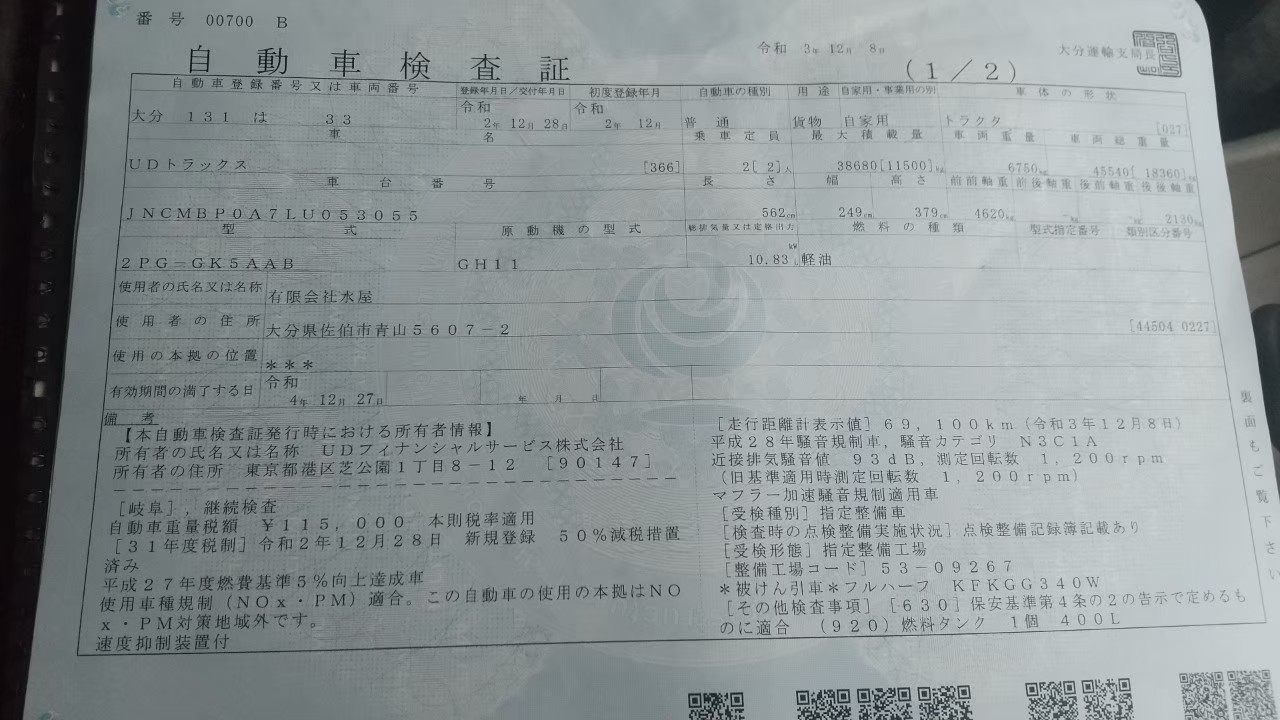 番号 00700 B
令和 3年 12月 8日
大分運輸支局長
自動車検査証
(1/2)
自動車登録番号又は車両番号 登録年月日/交付年月日 初度登録年月 自動車の種別 用途 自家用・事業用の別 車体の形状
大分 131 は 33 令和 2年 12月 28日 令和 2年 12月 普通 貨物 自家用 トラクタ [027]
車名 乗車定員 最大積載量 車両重量 車両総重量
UDトラックス [366] 2[ 2]人 38680[11500]kg 6750kg 45540[ 18360]kg
車台番号 長さ 幅 高さ 前前軸重 前後軸重 後前軸重 後後軸重
JNCMBP0A7LU053055 562cm 249cm 379cm 4620kg -kg -kg 2130kg
型式 原動機の型式 総排気量又は定格出力 燃料の種類 型式指定番号 類別区分番号
2PG-GK5AAB GH11 10.83 kW L 軽油
使用者の氏名又は名称 有限会社水屋
使用者の住所 大分県佐伯市青山5607-2 [44504 0227]
使用の本拠の位置 ***
有効期間の満了する日 令和 4年 12月 27日 年 月 日
備考
【本自動車検査証発行時における所有者情報】
所有者の氏名又は名称 UDフィナンシャルサービス株式会社
所有者の住所 東京都港区芝公園1丁目8-12 [90147]
[岐阜],継続検査
自動車重量税額 ¥115,000 本則税率適用
[31年度税制]令和2年12月28日 新規登録 50%減税措置
済み
平成27年度燃費基準5%向上達成車
使用車種規制(NOx・PM)適合。この自動車の使用の本拠はNO
x・PM対策地域外です。
速度抑制装置付
[走行距離計表示値]69,100km(令和3年12月8日)
平成28年騒音規制車,騒音カテゴリ N3C1A
近接排気騒音値 93dB,測定回転数 1,200rpm
(旧基準適用時測定回転数 1,200rpm)
マフラー加速騒音規制適用車
[受検種別]指定整備車
[検査時の点検整備実施状況]点検整備記録簿記載あり
[受検形態]指定整備工場
[整備工場コード]53-09267
*被けん引車*フルハーフ KFKGG340W
[その他検査事項][630]保安基準第4条の2の告示で定めるも
のに適合 (920)燃料タンク 1個 400L
裏面もご覧下さい